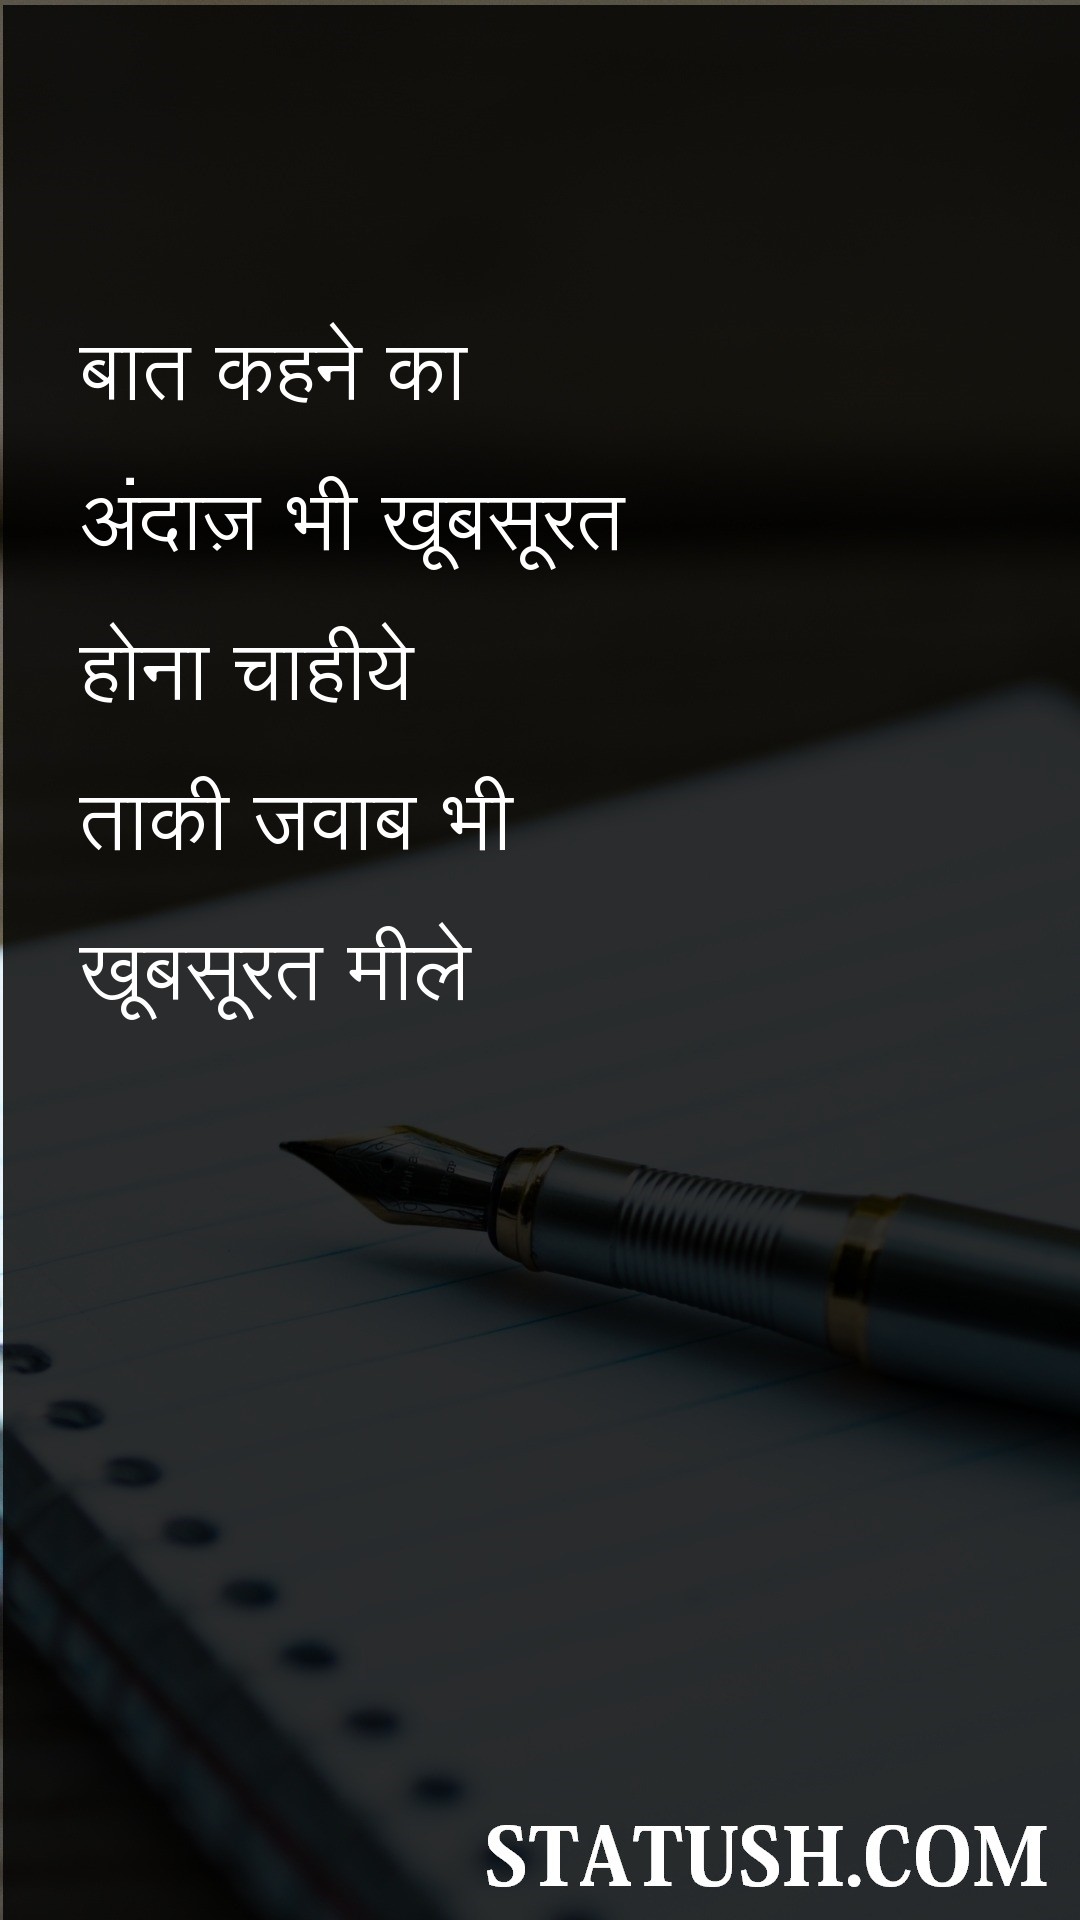 बात कहने का
अंदाज़ भी खूबसूरत
होना चाहीये
ताकी जवाब भी
खूबसूरत मीले
STATUSH.COM